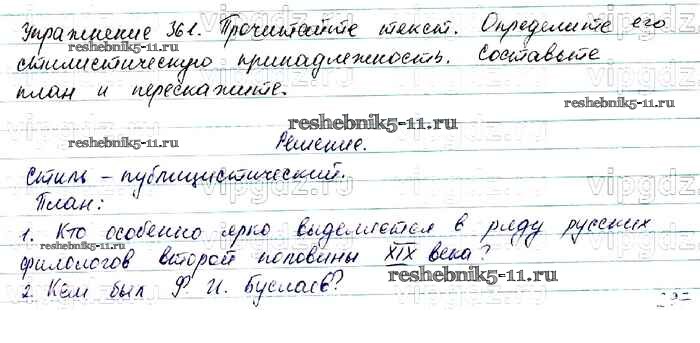 Упражнение 361. Прочитайте текст. Определите его
reshebnik5-11.ru
стилистическую принадлежность. Составьте
план и перескажите.
reshebnik5-11.ru
vipgdz.ru
reshebnik5-11.ru
Решение.
reshebnik5-11.ru
Стиль – публицистический.
План:
1. Кто особенно ярко выделяется в ряду русских
reshebnik5-11.ru
филологов второй половины XIX века?
reshebnik5-11.ru
2. Кем был Ф. И. Буслаев?